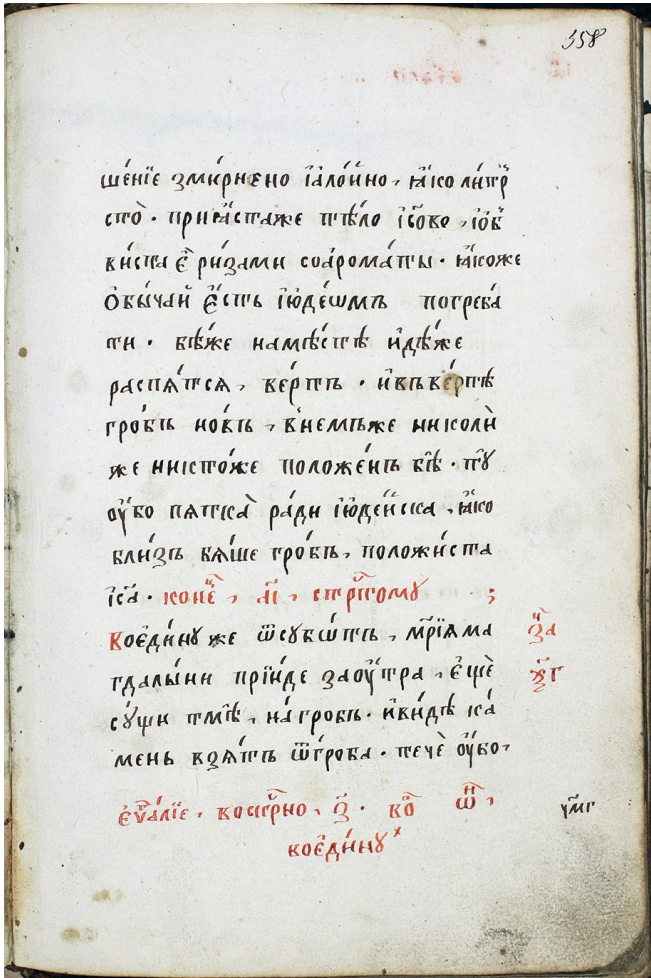 358
шéнїе змѵ́рнено їалѻ́йно, ꙗ҆́ко лѝтр҃
стѡ̀ · прїꙗ́стаже тѣ́ло і҆с҃ово , їѻб̾
вѝста є҆̀ ри́зами соарома́ты · ꙗ҆́коже
ѻбы́чай є҆́сть ію҆де́ѡмъ погреба́
ти · бѣ́же намѣ́стѣ и҆дѣ́же
распѧ́тсѧ , ве́ртъ · и҆въве́ртѣ
гро́бъ но́въ , в̾не́мъже николѝ
же никто́же положе́нъ бѣ̀ · тꙋ̀
ᲂу҆́бо пѧтка̀ ра́ди ію҆де́йска , ꙗ҆́ко
бли́зъ бѧ́ше гро́бъ , положи́ста
і҆с҃а · коне́ц , а҃і , стрⷭ҇тому ;
Воє҆ди́нꙋ же ѿсꙋбѡ́тъ , мр҃їѧ ма
гдалы́ни прїи́де заᲂу҆́тра , є҆щѐ
сꙋ́щи тмѣ̀ , на́гробъ · и҆ви́дѣ ка́
мень взѧ́тъ ѿгро́ба · течѐ ᲂу҆́бо ,
з҃а
ꙋ҃г
є҆ѵⷢ҇а́лїе , воскрⷭ҇но , з҃ · во ѿ ,
воє҆ди́нꙋⷯ
ум҃г